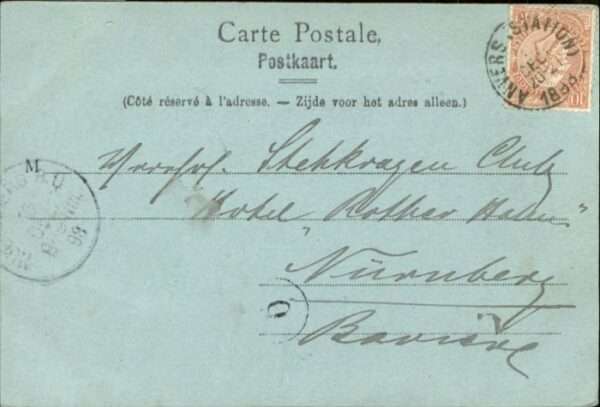 Carte Postale,
Postkaart.
(Côté réservé à l'adresse. — Zijde voor het adres alleen.)
ANVERS (STATION)
M
Stehkragen Club
Hotel "Rother Hahn"
Nürnberg
Bavière
O